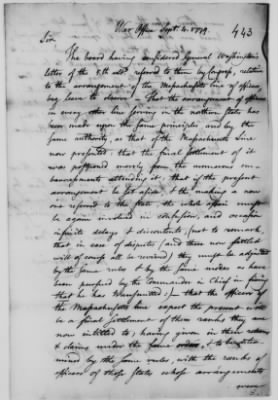 War Office Sept. 4. 1779.
443
Sir
The board having considered General Washington's
letter of the 8th ult. referred to them by Congress, relative
to the arrangement of the Massachusetts line of officers,
beg leave to observe, That the arrangement of officers
in every other line serving in the northern States has
been made upon the same principles and by the
same authority, as that of the Massachusetts line
now presented; that the final settlement of it
was postponed merely from the numerous em-
barrassments attending it; that if the present
arrangement be set aside & the making a new
one referred to the State, the whole affair must
be again involved in confusion, and occasion
infinite delays & discontents; (not to remark,
that in case of disputes (and those now settled
will of course all be revived) they must be adjusted
by the same rules & by the same modes as have
been pursued by the Commander in Chief in fixing
that he has transmitted;) that the officers of
the Massachusetts line expect the present will
be a final settlement of those ranks they are
now intitled to; having given in their
& claims under the same orders, & to be
mined by the same rules, with the ranks of
officers of those States whose arrangements